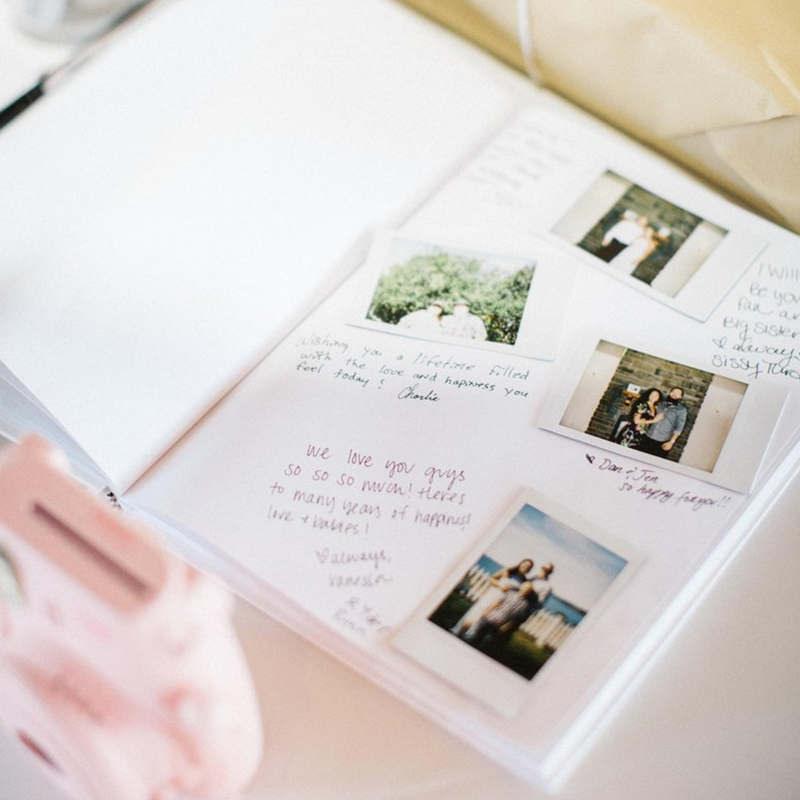 Wishing you a lifetime filled
with the love and happiness you
feel today!
Charlie
I will
Be you
fan an
Big sister
always
sissy
Dan & Jen
so happy for you!!
we love you guys
so so so much! Heres
to many years of happiness!
love + babies!
always,
vanessa